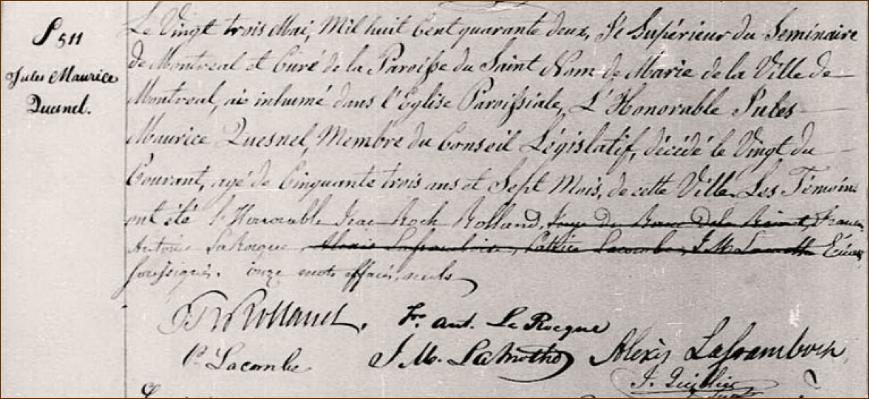 S 511
Jules Maurice
Quesnel.
Le Vingt trois Mai, Mil huit Cent quarante deux, Je Supérieur du Séminaire
de Montreal et Curé de la Paroisse du Saint Nom de Marie de la Ville de
Montreal, ai inhumé dans l'Eglise Paroissiale, L'Honorable Jules
Maurice Quesnel, Membre du Conseil Législatif, décédé le Vingt du
Courant, agé de Cinquante trois ans et Sept Mois, de cette Ville. Les Témoins
ont été l'Honorable Jean Roch Rolland,
Antoine LaRocque Alexis Laframboise, Patrice Lacombe, J. M. Lamothe
soussignés. onze mots effacés, nuls
J R Rolland. Fr. Ant. LaRocque
P. Lacombe J. M. Lamothe Alexis Laframboise
J. Quiblier